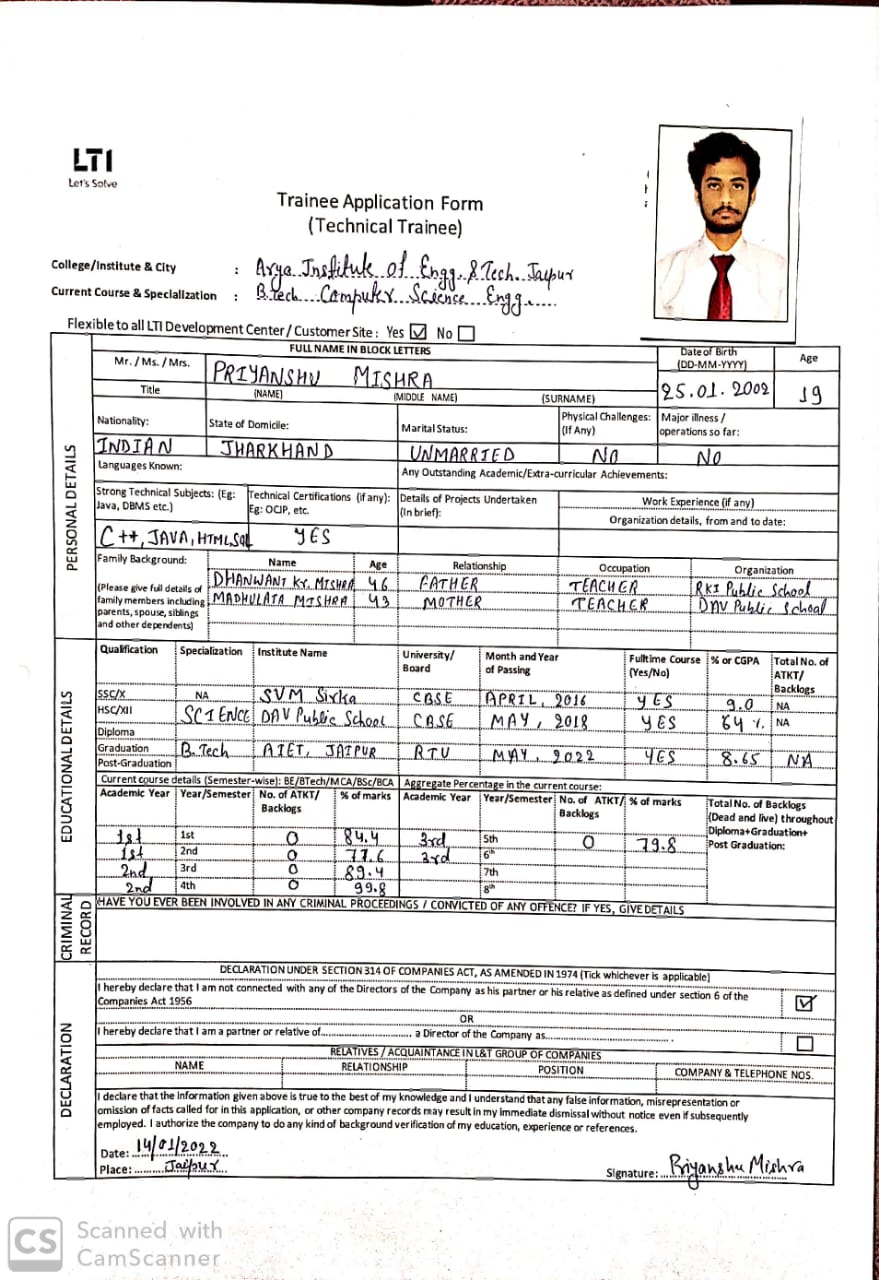 LTI
Let's Solve
Trainee Application Form
(Technical Trainee)
College/Institute & City : Arya Institute of Engg. & Tech. Jaipur
Current Course & Specialization : B.Tech Computer Science Engg.
Flexible to all LTI Development Center / Customer Site : Yes ☑ No ☐
FULL NAME IN BLOCK LETTERS
Date of Birth (DD-MM-YYYY) Age
Mr. / Ms. / Mrs. PRIYANSHU MISHRA 25.01.2002 19
Title (NAME) (MIDDLE NAME) (SURNAME)
PERSONAL DETAILS
Nationality: State of Domicile: Marital Status: Physical Challenges: (If Any) Major illness / operations so far:
INDIAN JHARKHAND UNMARRIED NO NO
Languages Known: Any Outstanding Academic/Extra-curricular Achievements:
Strong Technical Subjects: (Eg: Java, DBMS etc.) Technical Certifications (if any): Eg: OCJP, etc. Details of Projects Undertaken (In brief): Work Experience (if any)
Organization details, from and to date:
C++, JAVA, HTML, SQL YES
Family Background: Name Age Relationship Occupation Organization
(Please give full details of family members including parents, spouse, siblings and other dependents)
DHANWANT KR. MISHRA 46 FATHER TEACHER RKI Public School
MADHULATA MISHRA 43 MOTHER TEACHER DAV Public School
EDUCATIONAL DETAILS
Qualification Specialization Institute Name University/ Board Month and Year of Passing Fulltime Course (Yes/No) % or CGPA Total No. of ATKT/ Backlogs
SSC/X NA SVM Sirka CBSE APRIL, 2016 YES 9.0 NA
HSC/XII SCIENCE DAV Public School CBSE MAY, 2018 YES 64 % NA
Diploma
Graduation B.Tech AIET, JAIPUR RTU MAY, 2022 YES 8.65 NA
Post-Graduation
Current course details (Semester-wise): BE/BTech/MCA/BSc/BCA Aggregate Percentage in the current course:
Academic Year Year/Semester No. of ATKT/ Backlogs % of marks Academic Year Year/Semester No. of ATKT/ Backlogs % of marks Total No. of Backlogs (Dead and live) throughout Diploma+Graduation+ Post Graduation:
1st 1st 0 84.4 3rd 5th 0 79.8
1st 2nd 0 77.6 3rd 6th
2nd 3rd 0 89.4 7th
2nd 4th 0 99.8 8th
CRIMINAL RECORD
HAVE YOU EVER BEEN INVOLVED IN ANY CRIMINAL PROCEEDINGS / CONVICTED OF ANY OFFENCE? IF YES, GIVE DETAILS
DECLARATION
DECLARATION UNDER SECTION 314 OF COMPANIES ACT, AS AMENDED IN 1974 (Tick whichever is applicable)
I hereby declare that I am not connected with any of the Directors of the Company as his partner or his relative as defined under section 6 of the
Companies Act 1956 ☑
OR
I hereby declare that I am a partner or relative of.............................. a Director of the Company as.......................................... ☐
RELATIVES / ACQUAINTANCE IN L&T GROUP OF COMPANIES
NAME RELATIONSHIP POSITION COMPANY & TELEPHONE NOS.
I declare that the information given above is true to the best of my knowledge and I understand that any false information, misrepresentation or
omission of facts called for in this application, or other company records may result in my immediate dismissal without notice even if subsequently
employed. I authorize the company to do any kind of background verification of my education, experience or references.
Date: 14/01/2022
Place: Jaipur
Signature: Priyanshu Mishra
CS Scanned with
CamScanner